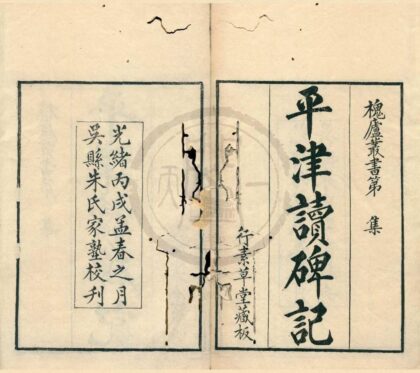 槐廬叢書第 集
平津讀碑記
行素草堂藏板
光緒丙戌孟春之月
吳縣朱氏家塾校刊